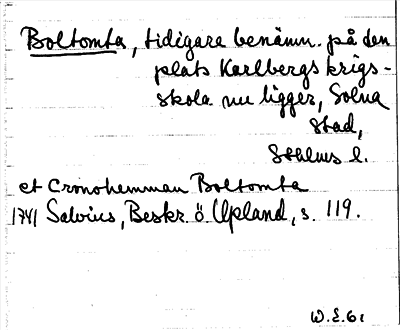 Boltomta, tidigare benämn. på den
plats Karlbergs krigs-
skola nu ligger, Solna
stad,
Sthlms l.
et Cronohemman Boltomta
1741 Salvius, Beskr. ö. Upland, s. 119.
W.E. 61